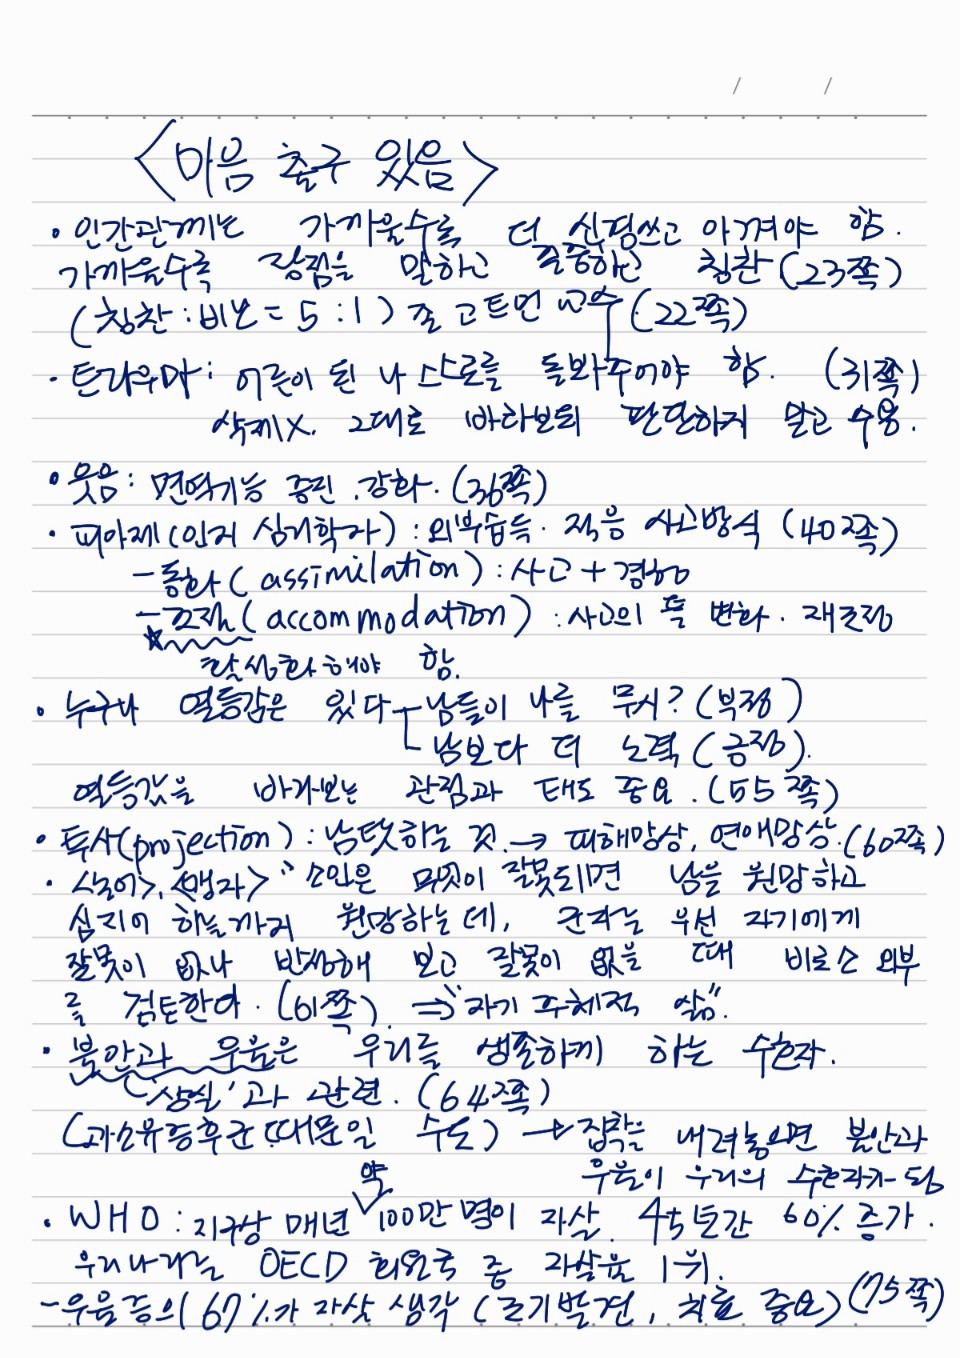 <마음 출구 있음>
· 인간관계는 가까울수록 더 신경쓰고 아껴야 함.
가까울수록 장점을 말하고 존중하고 칭찬 (23쪽)
(칭찬 : 비난 = 5 : 1) 존 고트먼 교수 (22쪽)
· 트라우마 : 어른이 된 나 스스로를 돌봐주어야 함. (31쪽)
삭제X. 그대로 바라보되 판단하지 말고 수용.
· 웃음 : 면역기능 증진. 강화. (36쪽)
· 피아제 (인지 심리학자) : 외부습득. 적응 사고방식 (40쪽)
- 동화 (assimilation) : 사고 + 경험
- 조절 (accommodation) : 사고의 틀 변화. 재조정
☆ 활성화해야 함.
· 누구나 열등감은 있다 남들이 나를 무시? (부정)
남보다 더 노력 (긍정).
열등감을 바라보는 관점과 태도 중요. (55쪽)
· 투사(projection) : 남탓하는 것. → 피해망상, 연애망상. (60쪽)
· <맹자> "소인은 무엇이 잘못되면 남을 원망하고
심지어 하늘까지 원망하는데, 군자는 우선 자기에게
잘못이 없나 반성해 보고 잘못이 없을 때 비로소 외부
를 검토한다. (61쪽) ⇒ "자기 주체적 삶".
· 불안과 우울은 우리를 생존하게 하는 수호자.
'상실'과 관련. (64쪽)
(과소유증후군 때문일 수도) → 집착을 내려놓으면 불안과
우울이 우리의 수호자가 됨
· WHO : 지구상 매년 약 100만 명이 자살. 45년간 60% 증가.
우리나라는 OECD 회원국 중 자살율 1위.
- 우울증의 67%가 자살 생각 (조기발견, 치료 중요) (75쪽)